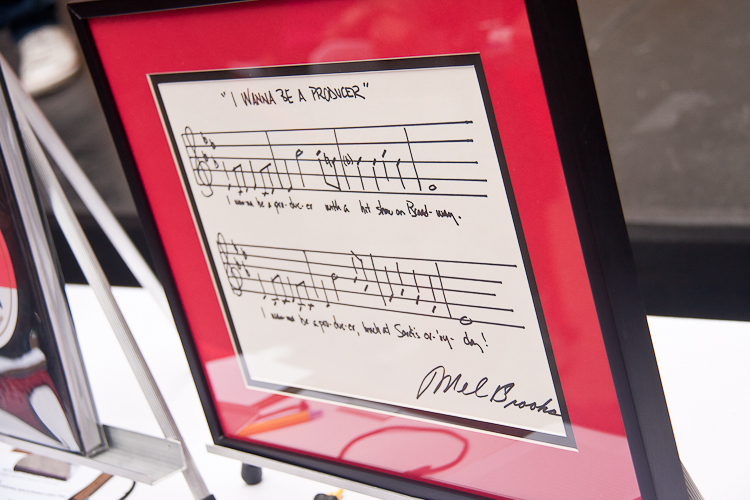 "I WANNA BE A PRODUCER"
I wanna be a pro-duc-er with a hit show on Broad-way.
I wanna be a pro-duc-er, lunch at Sardi's ev-'ry-day!
Mel Brooks